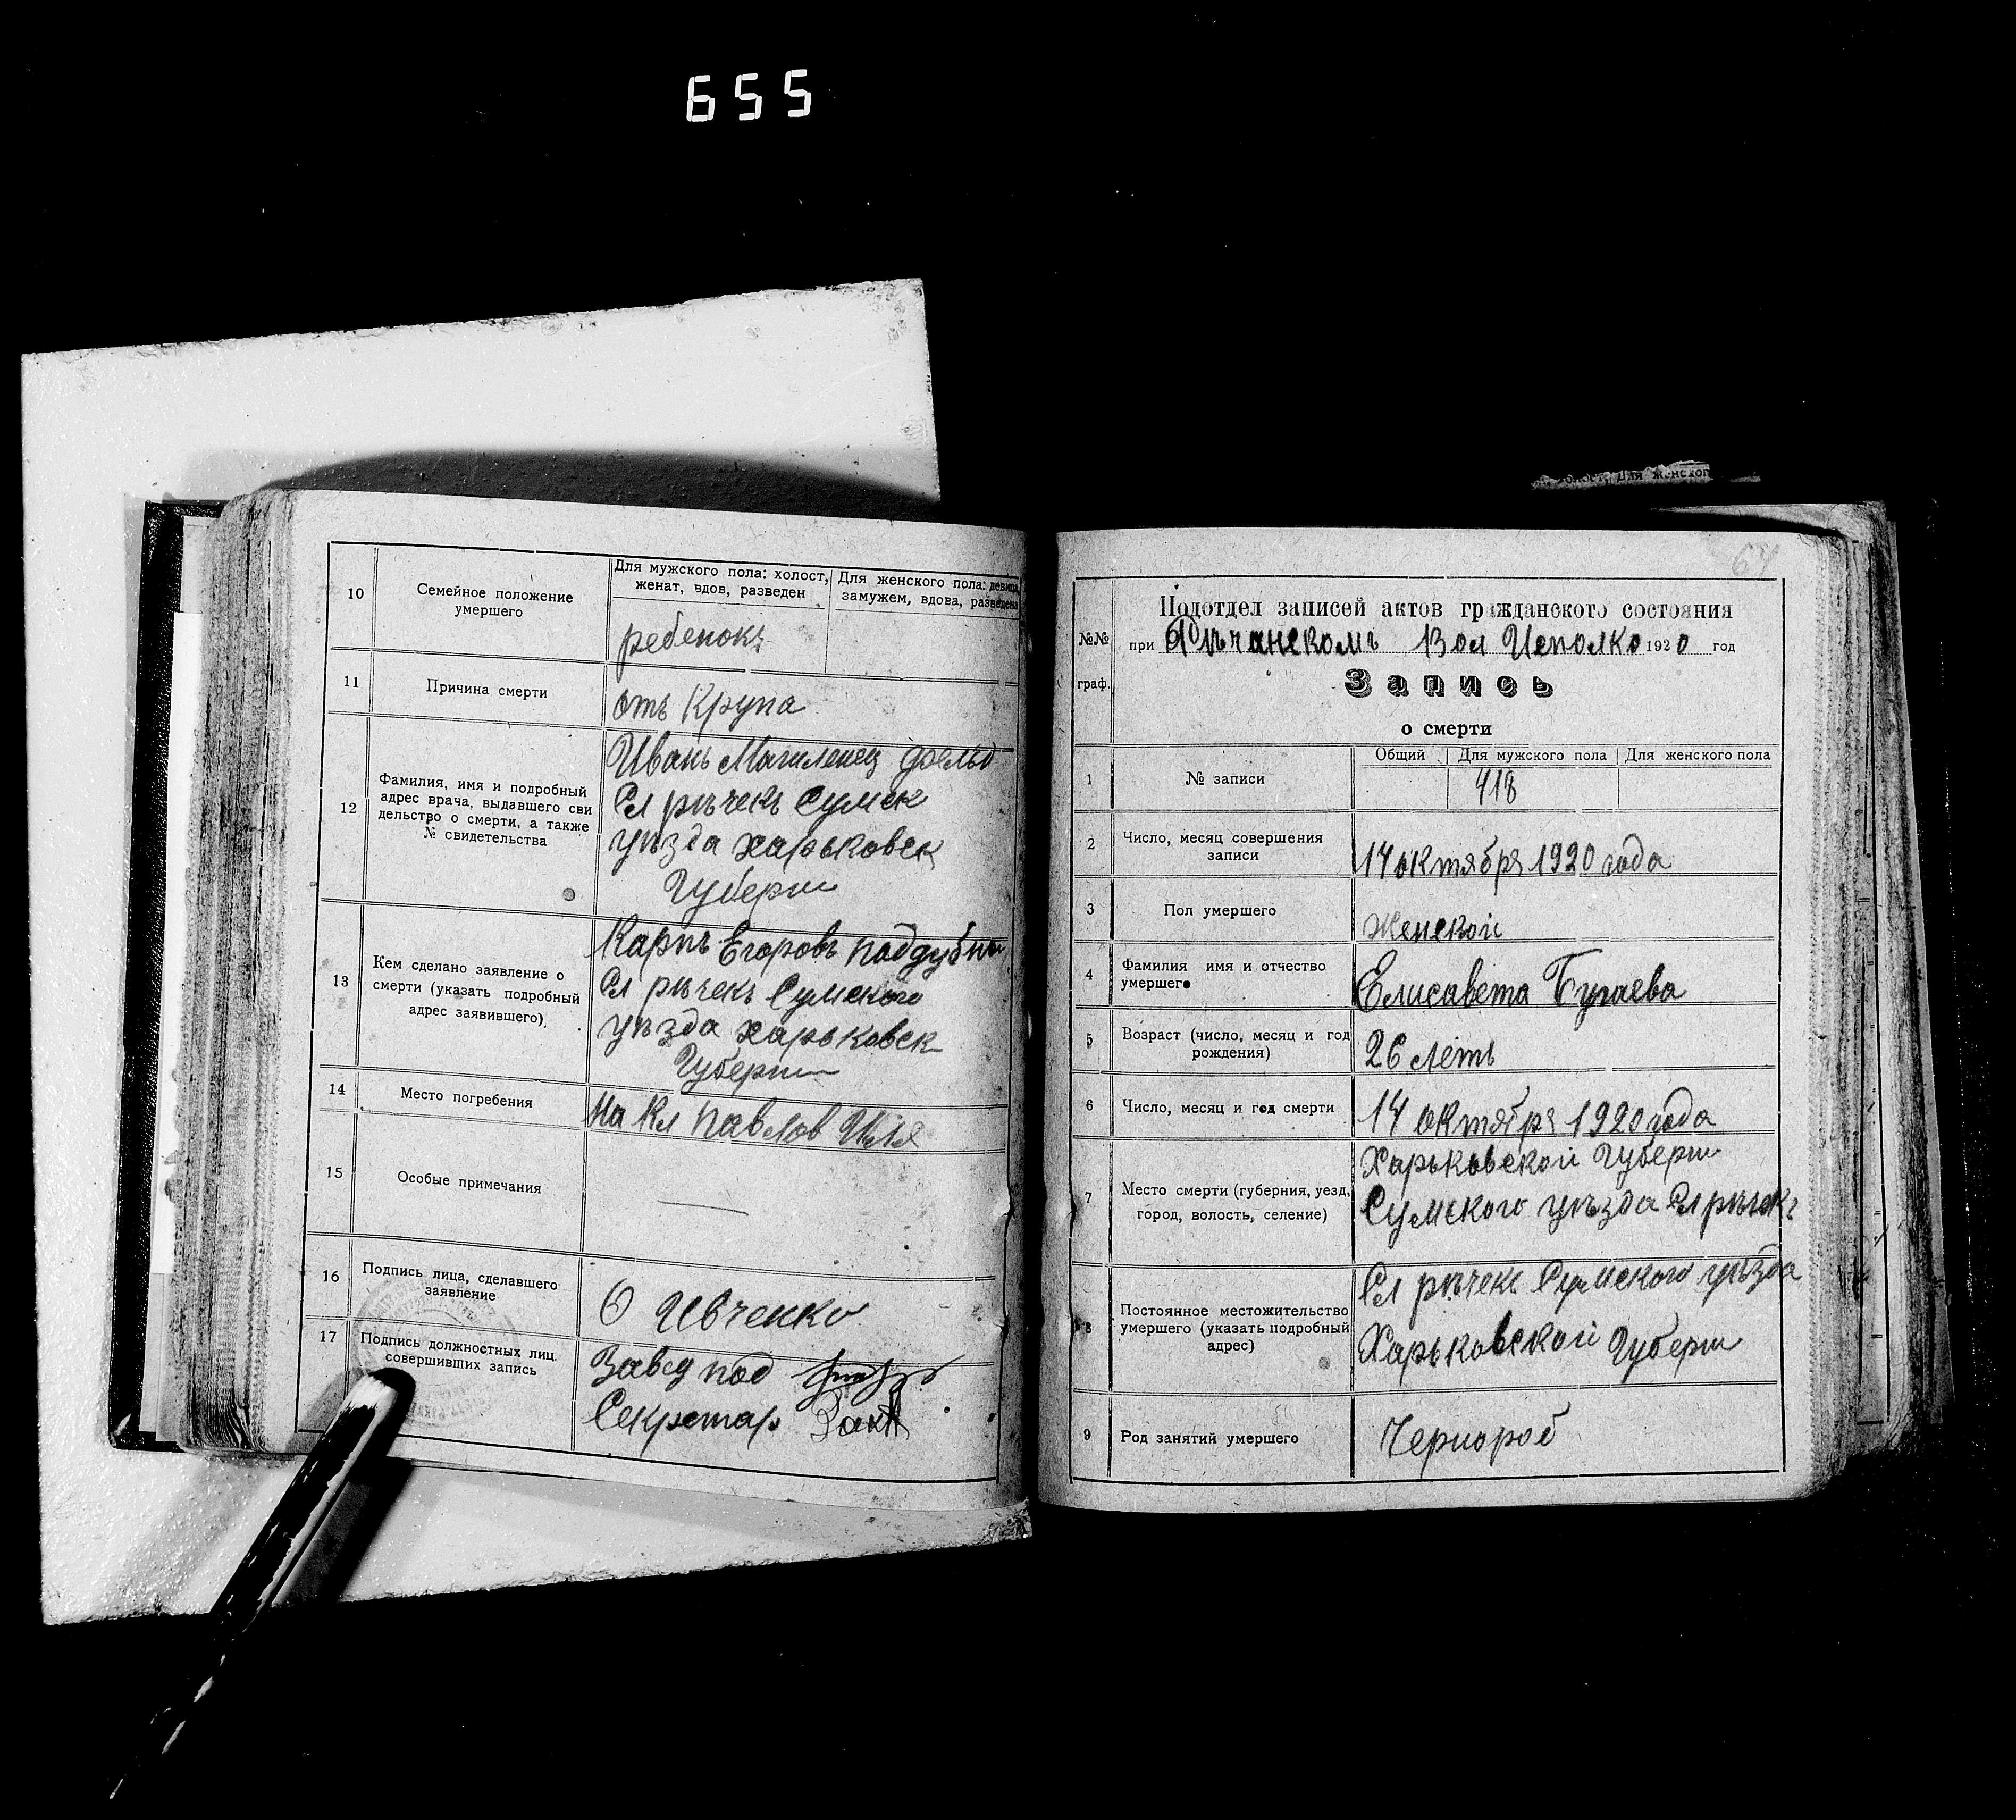 655
10
Семейное положение
умершего
Для мужского пола: холост,
женат, вдов, разведен
Для женского пола: девица,
замужем, вдова, разведена
ребенокъ
11
Причина смерти
отъ Крупа
12
Фамилия, имя и подробный
адрес врача, выдавшего сви
дельство о смерти, а также
№ свидетельства
Иванъ Магиленец
Сл рѣчекъ Сумск
уѣзда харьковск
Губерни
13
Кем сделано заявление о
смерти (указать подробный
адрес заявившего)
Карпъ Егоровъ поддубны
Сл рѣчекъ Сумского
уѣзда харьковск
Губерни
14
Место погребения
На Кл павлов
15
Особые примечания
16
Подпись лица, сделавшего
заявление
О Ивченко
17
Подпись должностных лиц,
совершивших запись
Завед под
Секретар
64
№№
граф.
Подотдел записей актов гражданского состояния
при Рѣчанскомъ Вол Исполко 1920 год
Запись
о смерти
1
№ записи
Общий
Для мужского пола
Для женского пола
418
2
Число, месяц совершения
записи
14 октября 1920 года
3
Пол умершего
Женской
4
Фамилия имя и отчество
умершего
Елисавета Бугаева
5
Возраст (число, месяц и год
рождения)
26 летъ
6
Число, месяц и год смерти
14 октября 1920 года
7
Место смерти (губерния, уезд,
город, волость, селение)
Харьковской Губерни
Сумского уѣзда Сл рѣчекъ
8
Постоянное местожительство
умершего (указать подробный
адрес)
Сл рѣчекъ Сумского уѣзда
Харьковской Губерни
9
Род занятий умершего
Чернороб